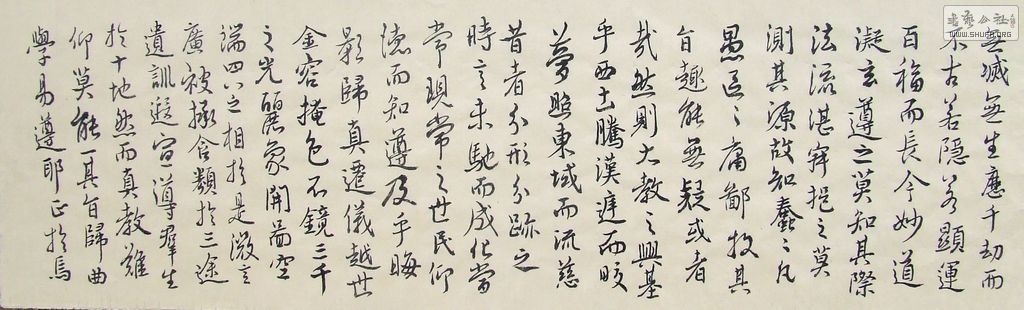 無滅無生應千劫而
不古若隱若顯運
百福而長今妙道
凝玄遵之莫知其際
法流湛寂挹之莫
測其源故知蠢々凡
愚區々庸鄙投其
旨趣能無疑或者
哉然則大教之興基
乎西土騰漢庭而皎
夢照東域而流慈
昔者分形分跡之
時言未馳而成化當
常現常之世民仰
德而知遵及乎晦
影歸真遷儀越世
金容掩色不鏡三千
之光麗象開圖空
端四八之相於是微言
廣被拯含類於三途
遺訓遐宣導羣生
於十地然而真教難
仰莫能一其旨歸曲
學易遵耶正於焉
書藝公社
WWW.SHUFA.ORG